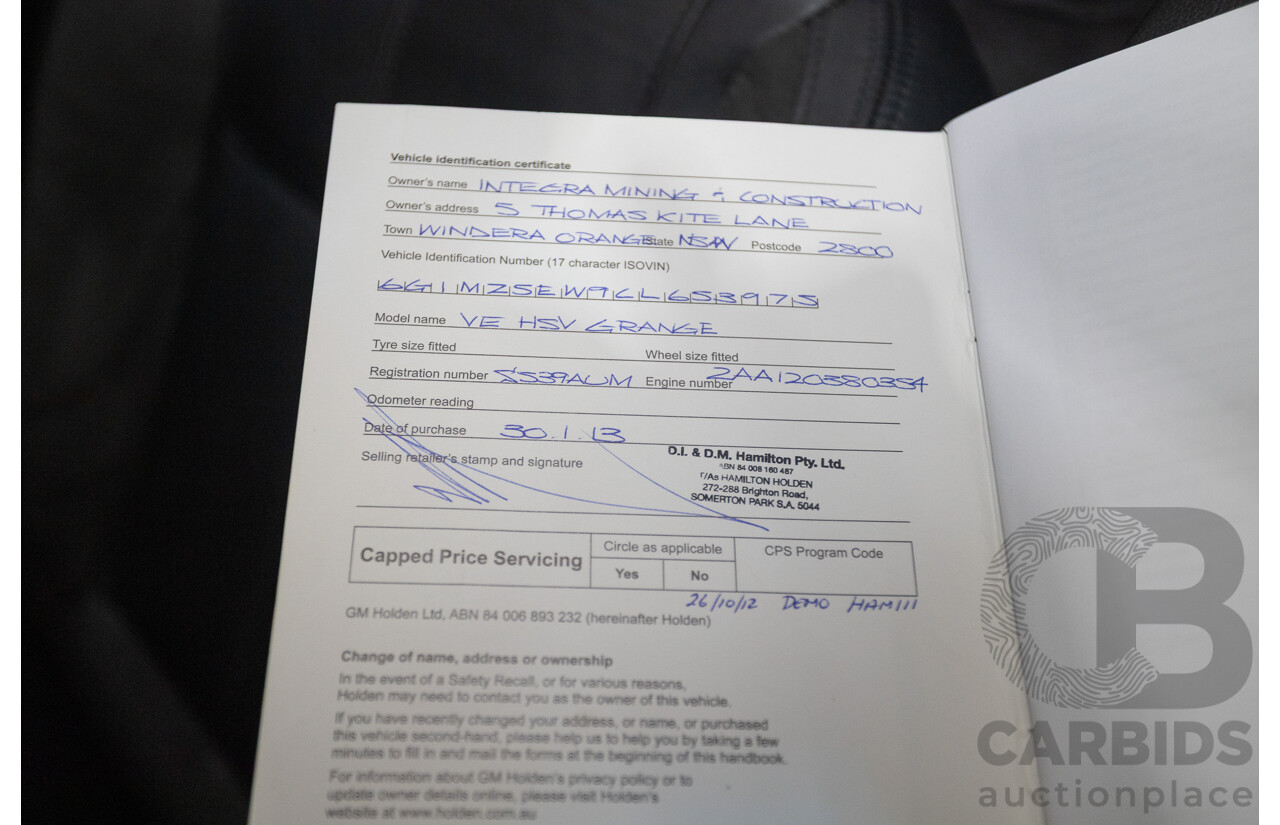 Vehicle identification certificate
Owner's name INTEGRA MINING & CONSTRUCTION
Owner's address 5 THOMAS KITE LANE
Town WINDERA ORANGE State NSW Postcode 2800
Vehicle Identification Number (17 character ISOVIN)
6G1MZ5EW9CL653975
Model name VE HSV GRANGE
Tyre size fitted Wheel size fitted
Registration number S539AUM Engine number 2AA120380354
Odometer reading
Date of purchase 30.1.13
Selling retailer's stamp and signature
D.I. & D.M. Hamilton Pty. Ltd.
ABN 84 008 160 487
T/As HAMILTON HOLDEN
272-288 Brighton Road,
SOMERTON PARK S.A. 5044
Capped Price Servicing
Circle as applicable
Yes No
CPS Program Code
26/10/12 DEMO
GM Holden Ltd, ABN 84 006 893 232 (hereinafter Holden)
Change of name, address or ownership
In the event of a Safety Recall, or for various reasons,
Holden may need to contact you as the owner of this vehicle.
If you have recently changed your address, or name, or purchased
this vehicle second-hand, please help us to help you by taking a few
minutes to fill in and mail the forms at the beginning of this handbook.
For information about GM Holden's privacy policy or to
update owner details online, please visit Holden's
website at www.holden.com.au
CB
CARBIDS
auctionplace